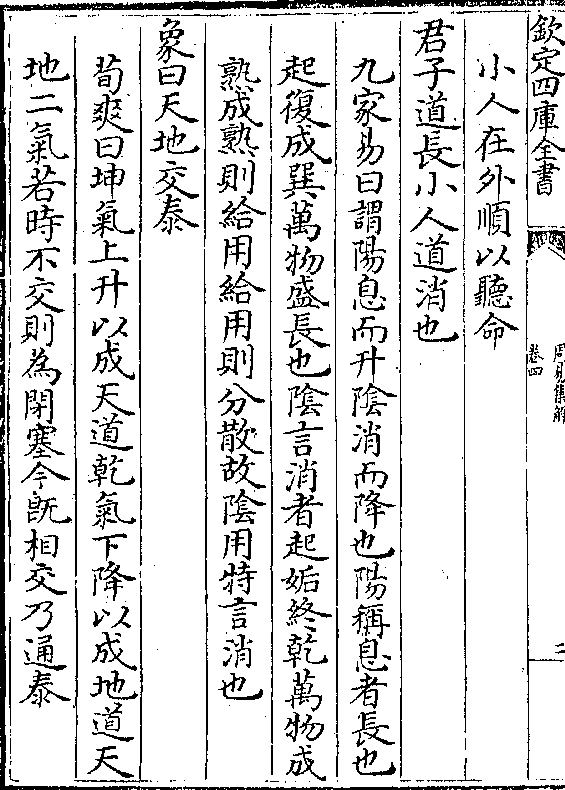 欽定四庫全書
周易集解
卷四
二
小人在外順以聽命
君子道長小人道消也
九家易曰謂陽息而升陰消而降也陽稱息者長也
起復成巽萬物盛長也陰言消者起姤終乾萬物成
熟成熟則給用給用則分散故陰用特言消也
象曰天地交泰
荀爽曰坤氣上升以成天道乾氣下降以成地道天
地二氣若時不交則為閉塞今既相交乃通泰